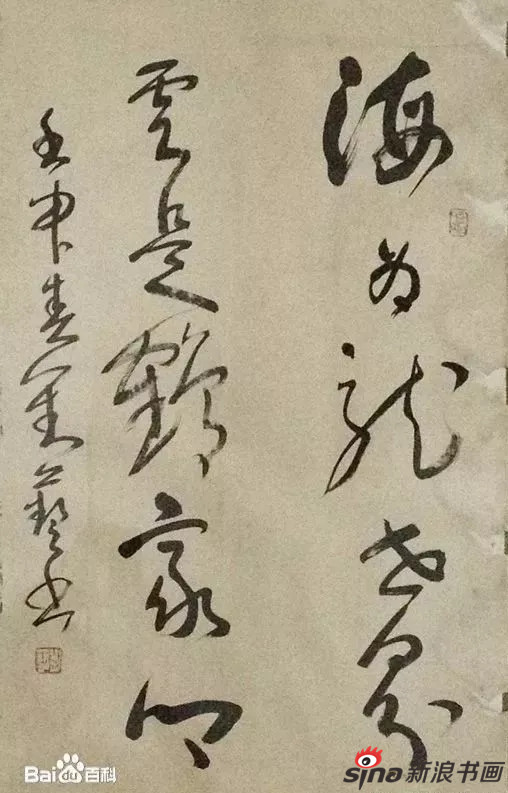 海為龍世界
雲是鶴家鄉
壬申春
書
Bai百科
sina新浪书画